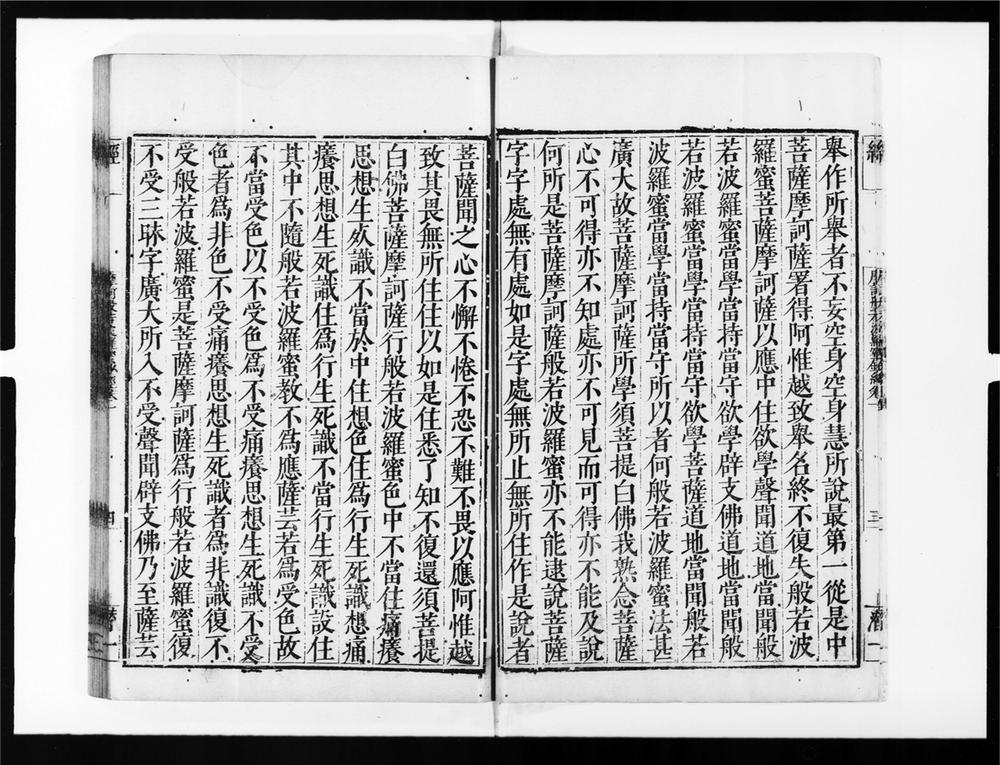 舉作所舉者不妄空身空身慧所說最第一從是中
菩薩摩訶薩署得阿惟越致舉名終不復失般若波
羅蜜菩薩摩訶薩以應中住欲學聲聞道地當聞般
若波羅蜜當學當持當守欲學辟支佛道地當聞般
若波羅蜜當學當持當守欲學菩薩道地當聞般若
波羅蜜當學當持當守所以者何般若波羅蜜法甚
廣大故菩薩摩訶薩所學須菩提白佛我熟念菩薩
心不可得亦不知處亦不可見而可得亦不能及說
何所是菩薩摩訶薩般若波羅蜜亦不能逮說菩薩
字字處無有處如是字處無所止無所住作是說者
菩薩聞之心不懈不惓不恐不難不畏以應阿惟越
致其畏無所住住以如是住悉了知不復還須菩提
白佛菩薩摩訶薩行般若波羅蜜色中不當住痛癢
思想生死識不當於中住想色住為行生死識想痛
癢思想生死識住為行生死識不當行生死識設住
其中不隨般若波羅蜜教不為應薩芸若為受色故
不當受色以不受色為不受痛癢思想生死識不受
色者為非色不受痛癢思想生死識者為非識復不
受般若波羅蜜是菩薩摩訶薩為行般若波羅蜜復
不受三昧字廣大所入不受聲聞辟支佛乃至薩芸